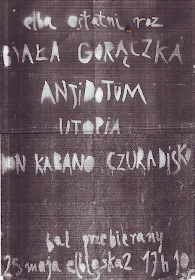 elba ostatni raz
BIAŁA GORĄCZKA
ANTIDOTUM
UTOPIA
DON KABANO CZURADISKO
bal przebierany
25 maja elbląska 2 17h 10